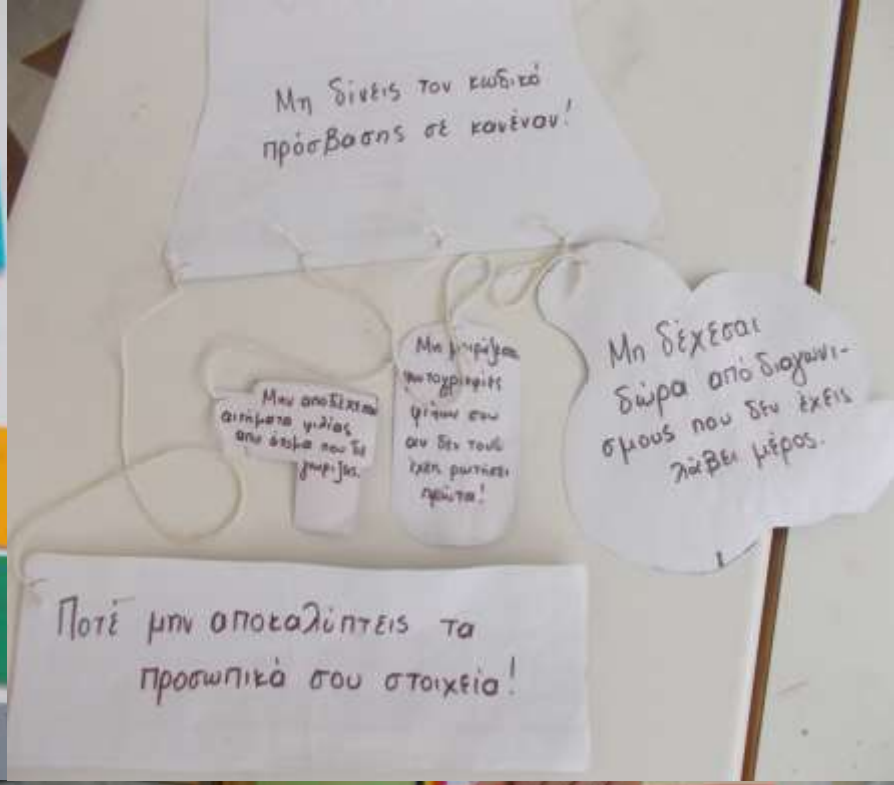 Μη δίνεις τον κωδικό
πρόσβασης σε κανέναν!
Μην αποδέχεσαι
αιτήματα φιλίας
από άτομα που δε
γνωρίζεις.
Μη μοιράζεσαι
φωτογραφίες
φίλων σου
αν δεν τους
έχεις ρωτήσει
πρώτα!
Μη δέχεσαι
δώρα από διαγωνι-
σμους που δεν έχεις
λάβει μέρος.
Ποτέ μην αποκαλύπτεις τα
προσωπικά σου στοιχεία!